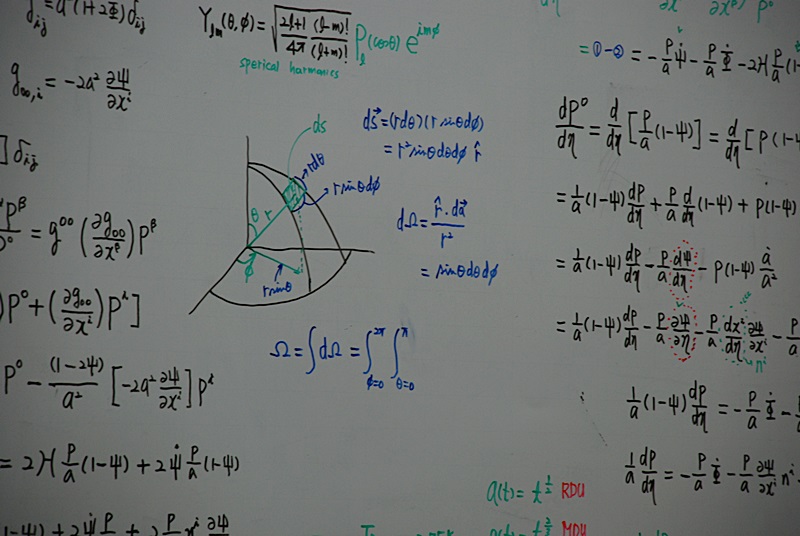 δij = a²(1+2Φ)δij
g00,i = -2a² ∂Ψ/∂xⁱ
]δij
= g⁰⁰(∂g00/∂x^β)P^β
)P⁰ + (∂g00/∂xⁱ)Pⁱ]
P⁰ - (1-2Ψ)/a² [-2a² ∂Ψ/∂xⁱ]Pⁱ
= 2H P/a (1-Ψ) + 2Ψ̇ P/a (1-Ψ)
Ylm(θ,φ) = √(2l+1/4π (l-m)!/(l+m)!) Pl(cosθ) e^imφ
sperical harmonics
ds
rdθ
rsinθdφ
θ
r
φ
rsinθ
ds⃗ = (rdθ)(rsinθdφ)
= r²sinθdθdφ r̂
dΩ = r̂·da⃗/r²
= sinθdθdφ
Ω = ∫dΩ = ∫φ=0^2π ∫θ=0^π
= ①-② = -P/a Ψ̇ - P/a Φ̇ - 2H P/a (1-
dP⁰/dη = d/dη [P/a (1-Ψ)] = d/dη [P(1-Ψ
= 1/a (1-Ψ) dP/dη + P/a d/dη (1-Ψ) + P(1-Ψ)
= 1/a (1-Ψ) dP/dη - P/a dΨ/dη - P(1-Ψ) ȧ/a²
= 1/a (1-Ψ) dP/dη - P/a ∂Ψ/∂η - P/a dxⁱ/dη ∂Ψ/∂xⁱ - P/a
nⁱ
1/a (1-Ψ) dP/dη = -P/a Φ̇ -
1/a dP/dη = -P/a Φ̇ - P/a ∂Ψ/∂xⁱ nⁱ
a(t) = t^1/2 RDU
a(t) = t^2/3 MDU